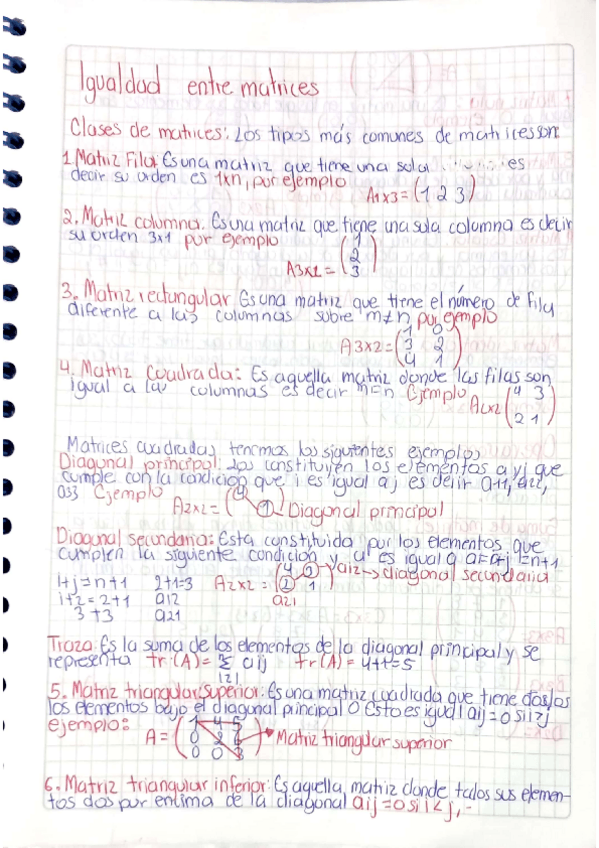 Igualdad entre matrices
Clases de matrices: Los tipos más comunes de matrices son:
1. Matriz Fila: Es una matriz que tiene una sola es
decir su orden es 1xn, por ejemplo
A1x3 = (1 2 3)
2. Matriz columna. Es una matriz que tiene una sola columna es decir
su orden 3x1 por ejemplo
A3x1 = (1
2
3)
3. Matriz rectangular Es una matriz que tiene el número de fila
diferente a las columnas sobre m≠n por ejemplo
A3x2 = (1 0
3 2
4 1)
4. Matriz cuadrada: Es aquella matriz donde las filas son
igual a las columnas es decir m=n Ejemplo
A2x2 (4 3
2 1)
Matrices cuadradas tenemos los siguientes ejemplos
Diagonal principal: Los constituyen los elementos a y j que
cumple con la condición que i es igual a j es decir a11, a22,
a33 Ejemplo
A2x2 = (4
1) Diagonal principal
Diagonal secundaria: Esta constituida por los elementos que
cumplen la siguiente condicion y a es igual a n+1
i+j=n+1 2+1=3 A2x2 = (4 2 → a12 → diagonal secundaria
1+2=2+1 a12 2 1)
3+3 a21 a21
Traza: Es la suma de los elementos de la diagonal principal y se
representa tr(A) = Σ aij tr(A) = 4+1=5
5. Matriz triangular superior: Es una matriz cuadrada que tiene todos los
los elementos bajo el diagonal principal 0 Esto es igual aij=0 si i>j
ejemplo:
A = (1 4
0 2
0 0 Matriz triangular superior
6. Matriz triangular inferior: Es aquella matriz donde todos sus elemen-
tos dos por encima de la diagonal aij=0 si i<j,